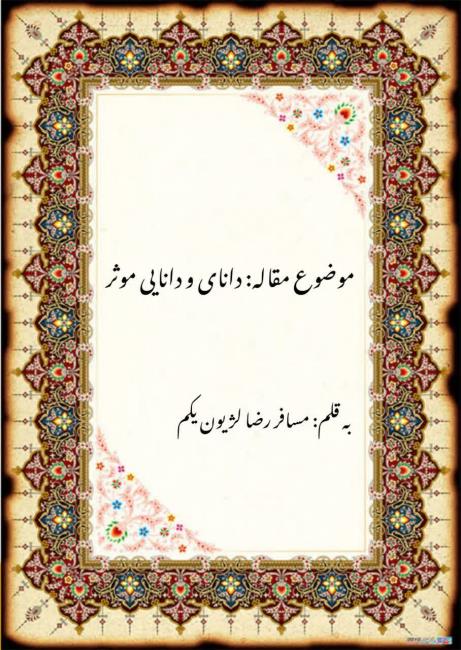 موضوع مقاله: دانای و دانایی موثر
به قلم: مسافر رضا لژیون یکم